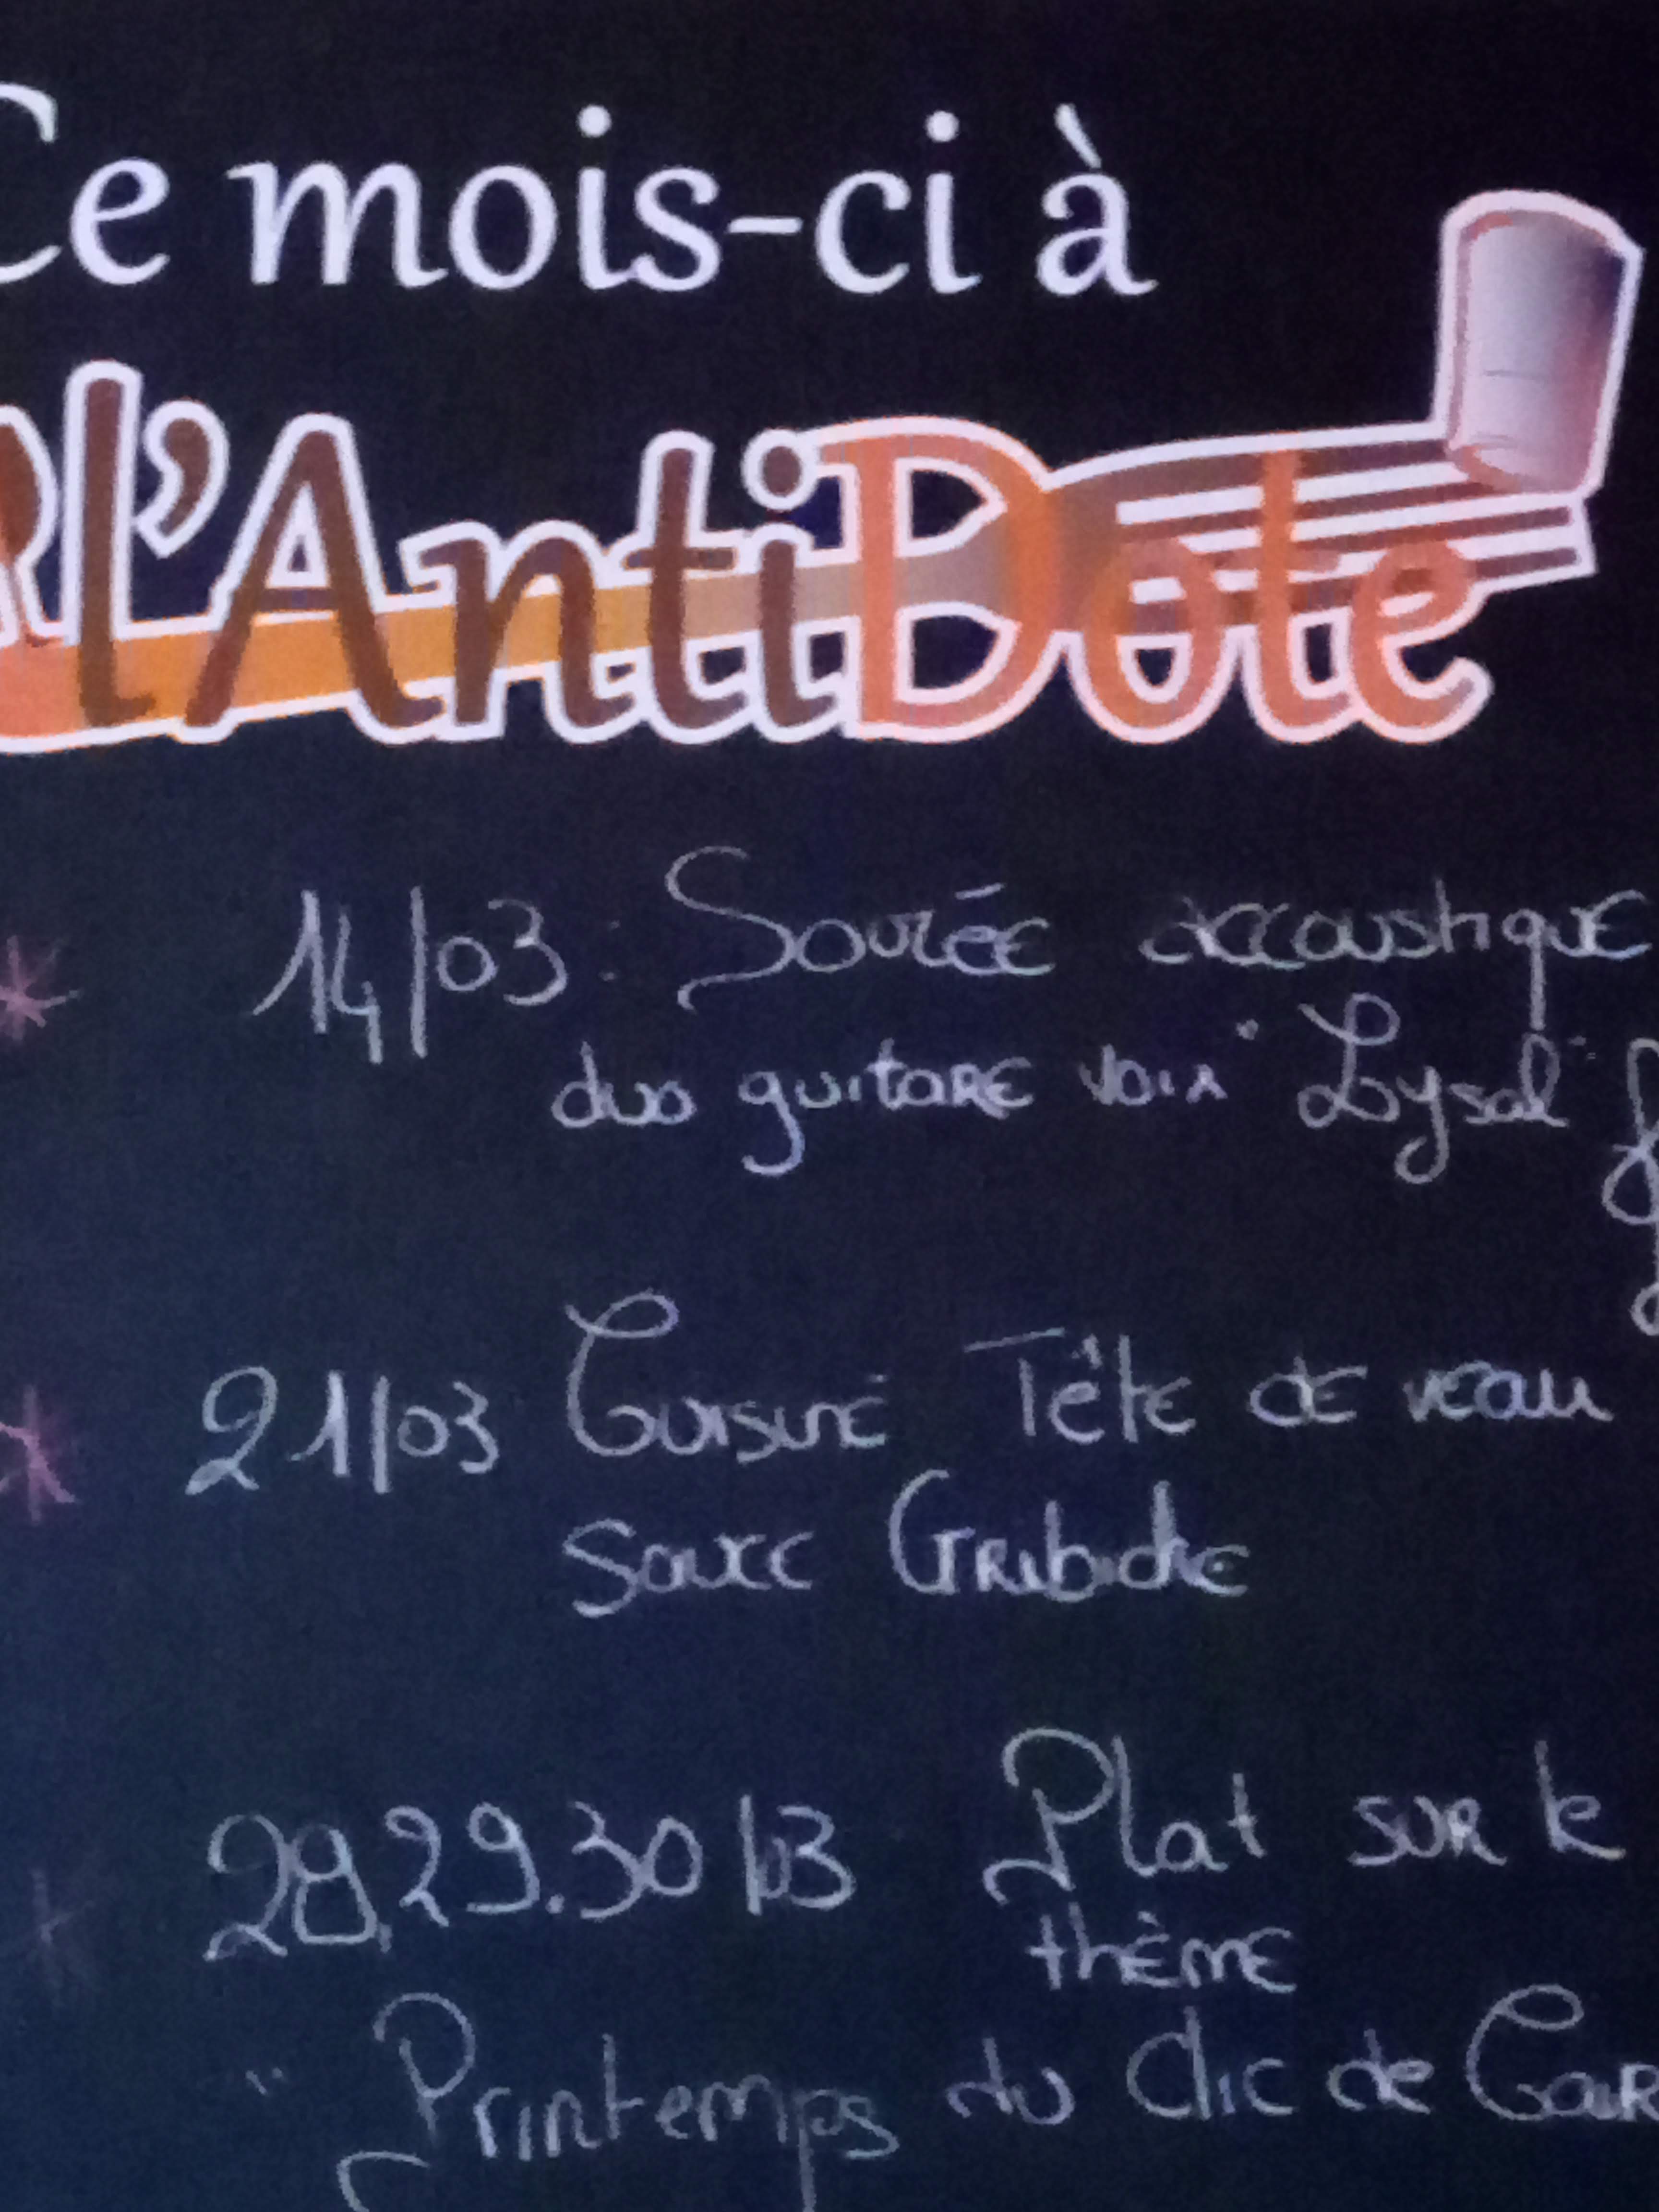 Ce mois-ci à
l'AntiDote
14/03: Soirée accoustique
duo guitare voix "Lysal"
21/03 Cuisine Tête de veau
Sauce Gribiche
28.29.30/03 Plat sur le
thème
"Printemps du Clic de